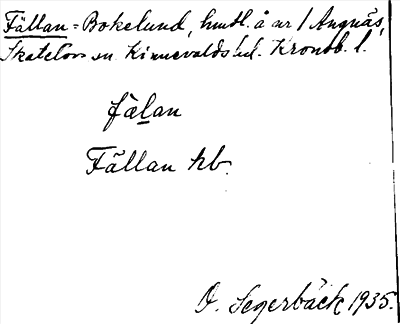 Fällan = Bokelund, hmdl. å nr 1 Angnäs,
Skatelövs sn. Kinnevalds hd. Kronob. l.
fälan
Fällan hb.
O. Segerbäck 1935.